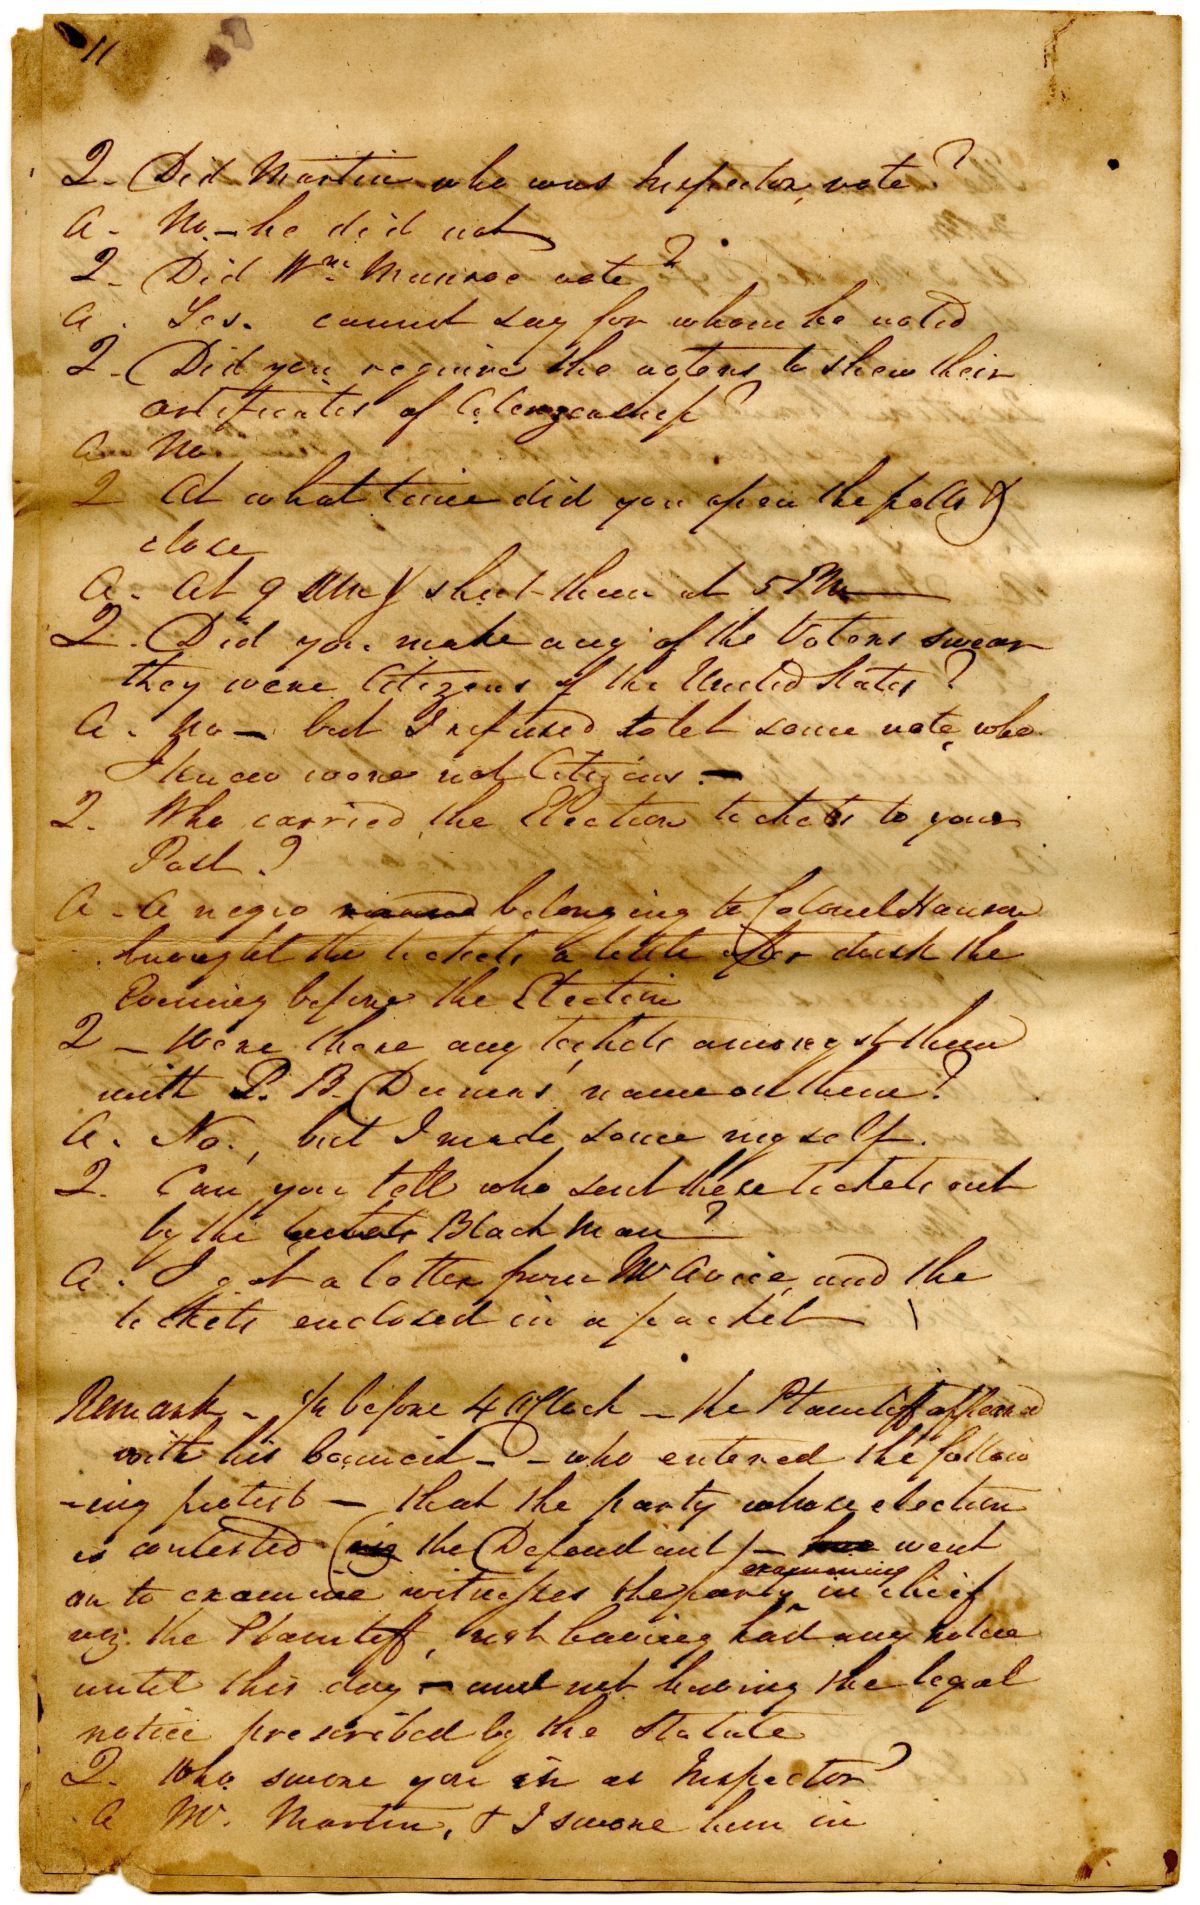 11
Q - Did Martin who was Inspector, vote?
A - No - he did not
Q - Did Wm. Munroe vote?
A. Yes. cannot say for whom he voted
Q - Did you require the voters to shew their
certificates of Citizenship?
A No
Q At what time did you open the polls &
close
A - At 9 AM & shut them at 5 PM
Q. Did you make any of the Voters swear
they were Citizens of the United States?
A - No - but I refused to let some vote, who
I knew were not Citizens. -
Q. Who carried the Election tickets to your
Post?
A - A negro named belonging to Colonel Hanson
brought the tickets a little after dusk the
Evening before the Election
Q - Were there any tickets amongst them
with P. B. Dumas' name on them?
A. No., but I made some myself.
Q. Can you tell who sent these tickets out
by the Black Man?
A. I got a letter from Mr Avice, and the
tickets enclosed in a packet
Remark - before 4 O'Clock - the Plaintiff appeared
with his Council - - who entered the follow
-ing protest - that the party whose election
is contested (viz the Defendant) - went
on to examine witnesses the party examining in chief
viz. the Plaintiff, not having had any notice
until this day - and not having the legal
notice prescribed by the Statute
Q. Who swore you in as Inspector?
A Mr. Martin, & I swore him in